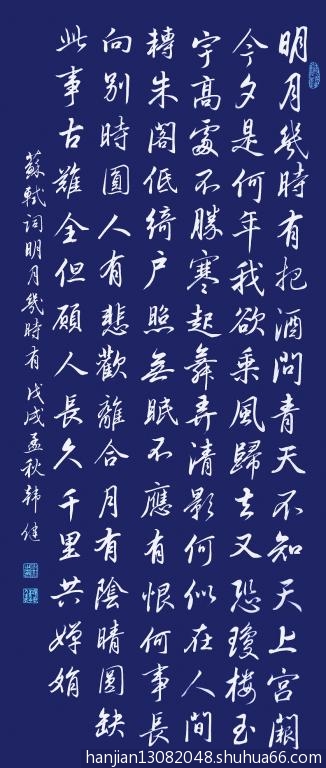 明月幾時有把酒問青天不知天上宮闕
今夕是何年我欲乘風歸去又恐瓊樓玉
宇高處不勝寒起舞弄清影何似在人間
轉朱閣低綺戶照無眠不應有恨何事長
向別時圓人有悲歡離合月有陰晴圓缺
此事古難全但願人長久千里共嬋娟
蘇軾詞明月幾時有戊戌孟秋韩健
hanjian13082048.shuhua66.com